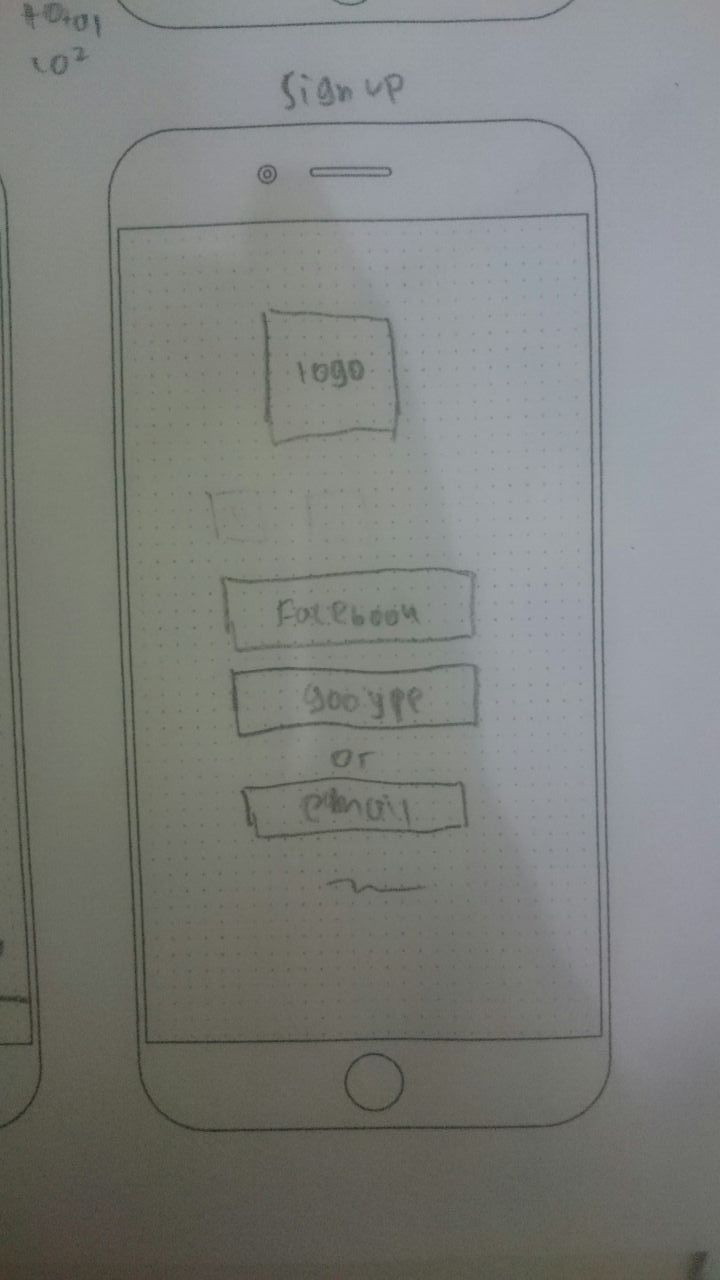 10²
Sign up
logo
Facebook
google
or
email